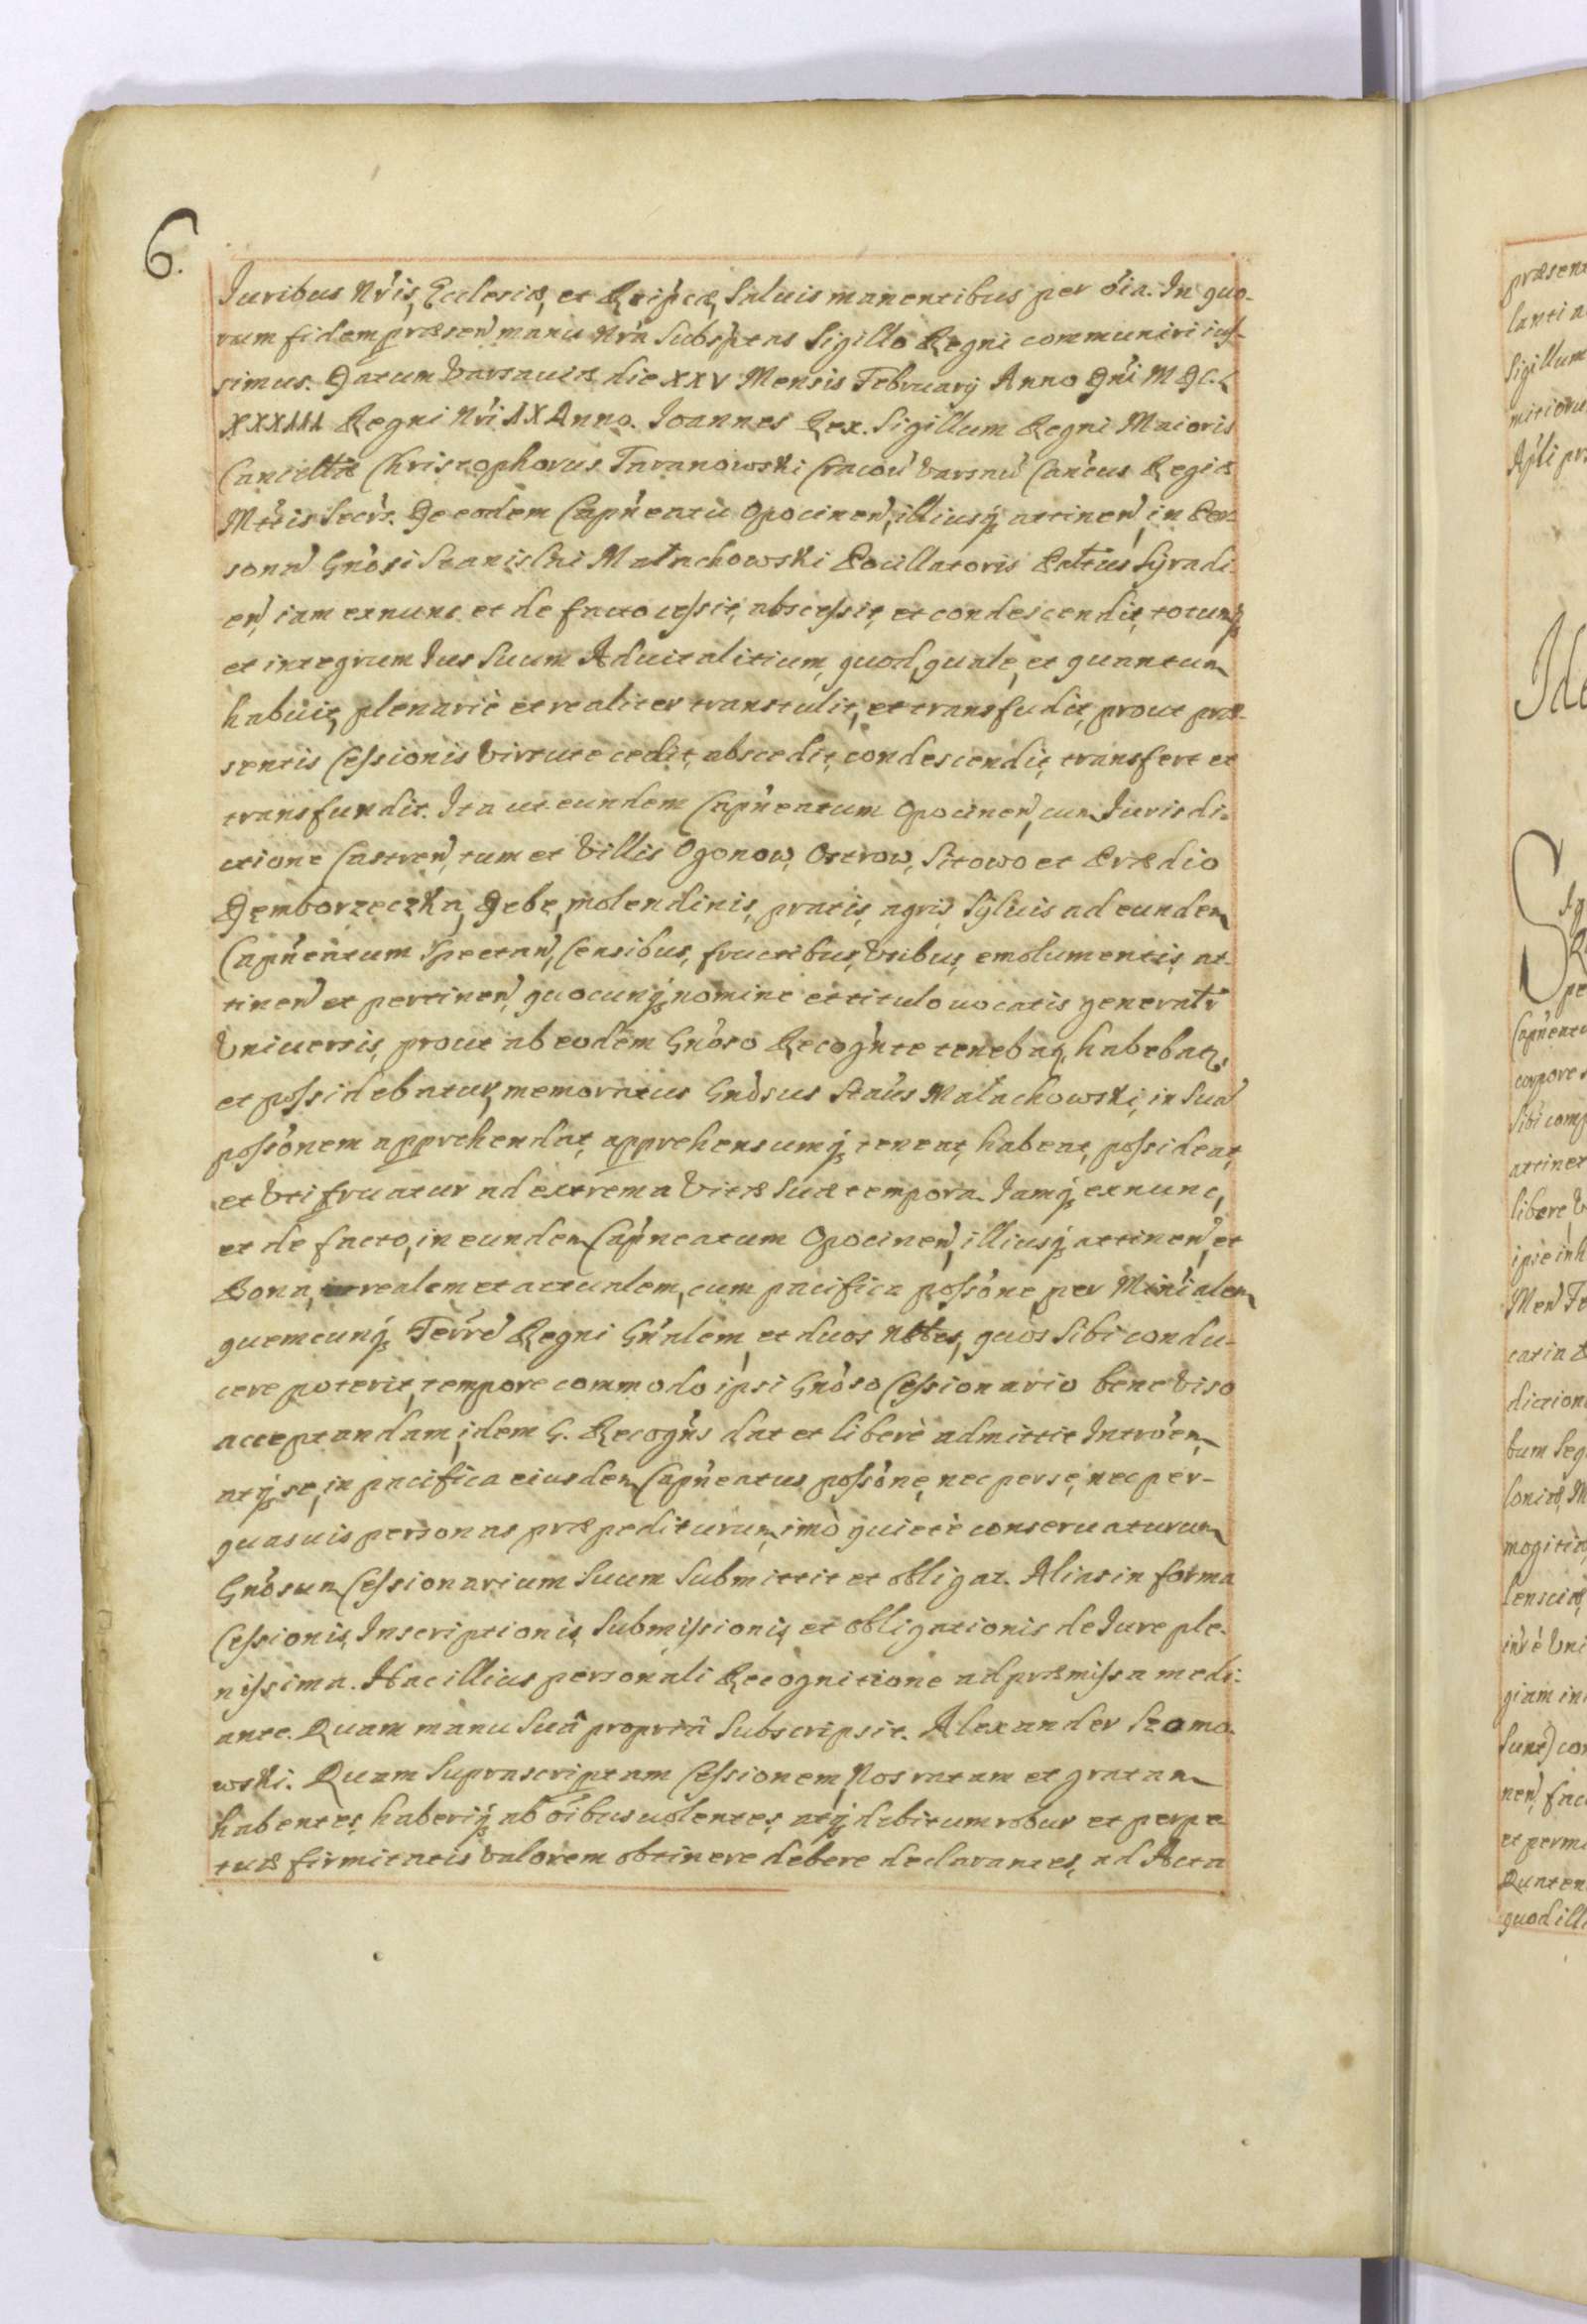 6.
Iuribus Nris, Ecclesiæ, et Reipcæ, Saluis manentibus per oia. In quo-
rum fidem præsen manu Nra Subsptas Sigillo Regni communiri ius-
simus. Datum Varsauiæ die XXV Mensis February Anno Dni M DC. L
XXXIII Regni Nri IX Anno. Ioannes Rex. Sigillum Regni Maioris
Cancellæ Christophorus Taranowski Cracou Varsau Cancus Regiæ
Mttis Secrs. De eodem Capneatu Opocinen, illiusq attinen, in Per-
sona Gnosi Stanislai Małachowski Pocillatoris Pattus Syradi-
en, iam exnunc et de facto cessit, abscessit, et condescendit, totumq
et integrum Ius Suum Aduitalitium, quod, quale, et quantum
habuit, plenariè et realiter transtulit, et transfudit, prout præ-
sentis Cessionis Virtute cedit, abscedit, condescendit, transfert et
transfundit. Ita ut eundem Capneatum Opocinen, cum Iurisdi-
ctione Castren, tum et Villis Ogonow, Ostrow, Sitowo et Prædio
Dęmborzeczka, Dębe, molendinis, pratis, agris, Syluis ad eundem
Capneatum Spectan, Censibus, fructibus, Vsibus, emolumentis, at-
tinen et pertinen, quocunq nomine et titulo uocatis generalr
Vniuersis, prout ab eodem Gnoso Recognte tenebatr, habebatr,
et possidebatur, memoratus Gnosus Staus Małachowski, in Sua
possonem apprehendat, apprehensumq teneat, habeat, possideat,
et Vti fruatur ad extrema Vitæ Suæ tempora. Iamq exnunc,
et de facto, in eundem Capneatum Opocinen, illiusq attinen, et
Bona, realem et actualem, cum pacifica possone, per Minialem
quemcunq Terre Regni Gnalem, et duos Nobles, quos Sibi condu-
cere poterit, tempore commodo ipsi Gnoso Cessionario bene Viso
acceptandam, idem G. Recogns dat et liberè admittit Introem,
atq se, in pacifica eiusdem Capneatus possone, nec per se, nec per-
quasuis personas præpediturum, imò quietè conseruaturum
Gnosum Cessionarium Suum Submittit et obligat. Alias in forma
Cessionis, Inscriptionis, Submissionis, et obligationis de Iure ple-
nissima. Hac illius personali Recognitione ad præmissa medi-
ante. Quam manu Suâ propriâ Subscripsit. Alexander Szamo-
wski. Quam Suprascriptam Cessionem, Nos ratam et gratam
habentes, haberiq ab oibus uolentes, atq debitum robur et perpe-
tuæ firmitatis Valorem obtinere debere declarantes, ad Acta